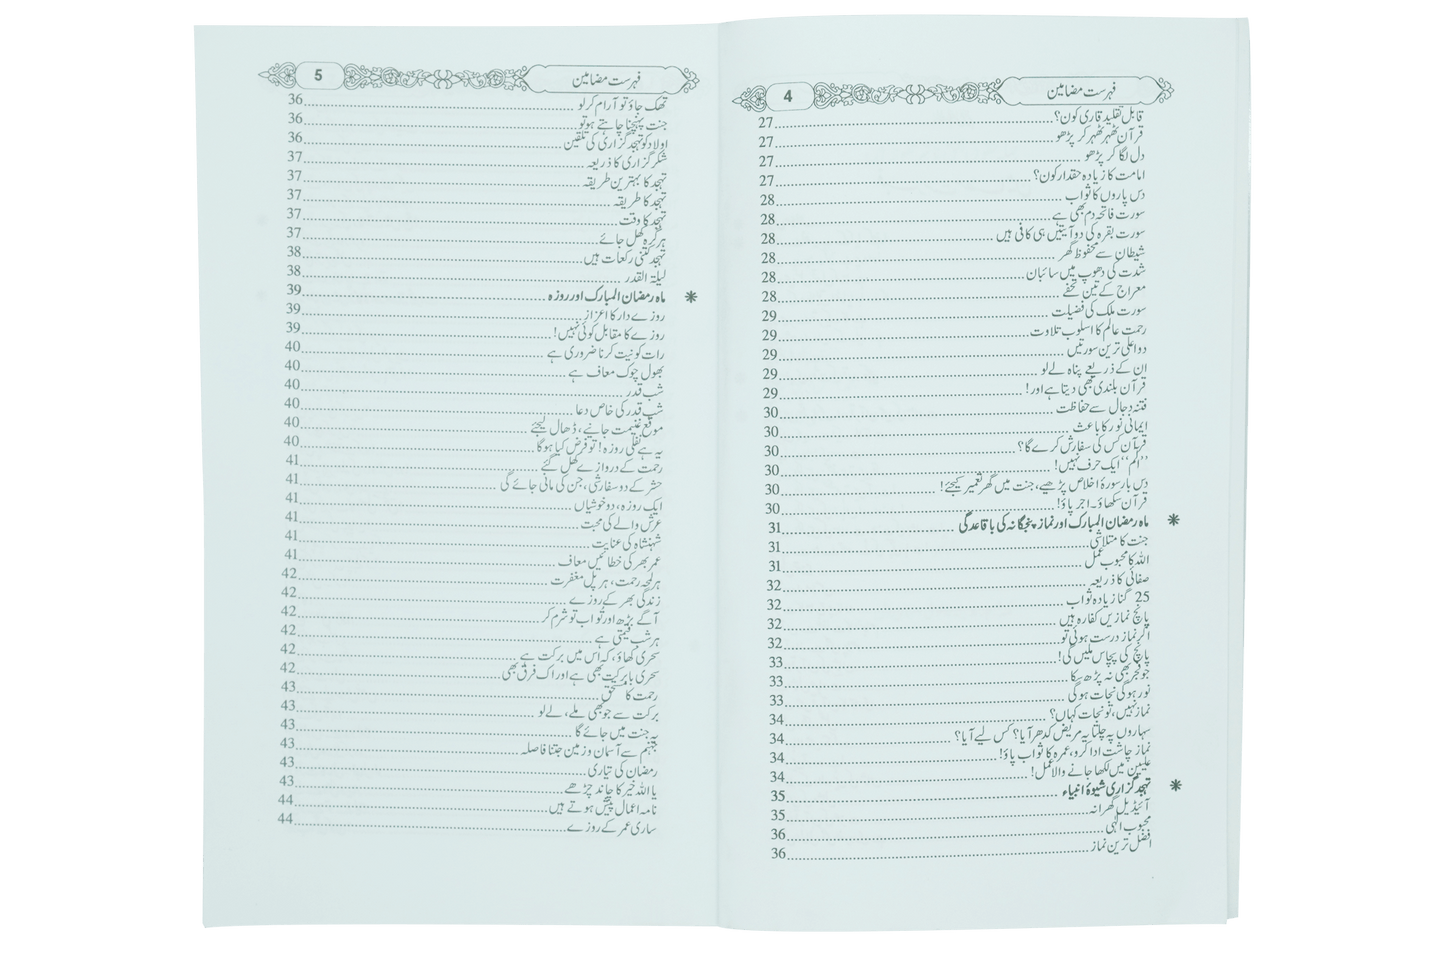 فہرست مضامین 4
قابل تقلید قاری کون؟ 27
قرآن ٹھہر ٹھہر کر پڑھو 27
دل لگا کر پڑھو 27
امامت کا زیادہ حقدار کون؟ 27
دس پاروں کا ثواب 28
سورت فاتحہ دم بھی ہے 28
سورت بقرہ کی دو آیتیں ہی کافی ہیں 28
شیطان سے محفوظ گھر 28
شدت کی دھوپ میں سائبان 28
معراج کے تین تحفے 28
سورت ملک کی فضیلت 29
رحمت عالم کا اسلوب تلاوت 29
دو اعلیٰ ترین سورتیں 29
ان کے ذریعے پناہ لے لو 29
قرآن بلندی بھی دیتا ہے اور! 29
فتنہ دجال سے حفاظت 30
ایمانی نور کا باعث 30
قرآن کس کی سفارش کرے گا؟ 30
’’الم‘‘ ایک حرف نہیں! 30
دس بار سورۂ اخلاص پڑھیے، جنت میں گھر تعمیر کیجئے! 30
قرآن سکھاؤ۔ اجر پاؤ! 30
❋ ماہ رمضان المبارک اور نماز پنجگانہ کی باقاعدگی 31
جنت کا متلاشی 31
اللہ کا محبوب عمل 31
صفائی کا ذریعہ 32
25 گنا زیادہ ثواب 32
پانچ نمازیں کفارہ ہیں 32
اگر نماز درست ہوئی تو 32
پانچ کی پچاس ملیں گی! 33
جو فجر بھی نہ پڑھ سکا 33
نور ہوگی نجات ہوگی 33
نماز نہیں، تو نجات کہاں؟ 34
سہاروں پہ چلتا یہ مریض کدھر آیا؟ کس لیے آیا؟ 34
نماز چاشت ادا کرو، عمرہ کا ثواب پاؤ! 34
علیین میں لکھا جانے والا عمل! 34
❋ تہجد گزاری شیوۂ انبیاء 35
آئیڈیل گھرانہ 35
محبوب الٰہی 36
افضل ترین نماز 36
فہرست مضامین 5
تھک جاؤ تو آرام کر لو 36
جنت پہنچنا چاہتے ہو تو 36
اولاد کو تہجد گزاری کی تلقین 36
شکر گزاری کا ذریعہ 37
تہجد کا بہترین طریقہ 37
تہجد کا طریقہ 37
تہجد کا وقت 37
ہر گرہ کھل جائے 37
تہجد کتنی رکعات ہیں 38
لیلۃ القدر 38
❋ ماہ رمضان المبارک اور روزہ 39
روزے دار کا اعزاز 39
روزے کا مقابل کوئی نہیں! 39
رات کو نیت کرنا ضروری ہے 40
بھول چوک معاف ہے 40
شب قدر 40
شب قدر کی خاص دعا 40
موقع غنیمت جانے، ڈھال لیجئے 40
یہ ہے نفلی روزہ! تو فرض کیا ہوگا 40
رحمت کے دروازے کھل گئے 41
حشر کے دو سفارشی، جن کی مانی جائے گی 41
ایک روزہ، دو خوشیاں 41
عرش والے کی محبت 41
شہنشاہ کی عنایت 41
عمر بھر کی خطائیں معاف 41
ہر لمحہ رحمت، ہر پل مغفرت 42
زندگی بھر کے روزے 42
آگے بڑھ اور تو اب تو شرم کر 42
ہر شب قیمتی ہے 42
سحری کھاؤ، کہ اس میں برکت ہے 42
سحری بابرکت بھی ہے اور اک فرق بھی 42
رحمت کا مستحق 43
برکت سے جو بھی ملے، لے لو 43
یہ جنت میں جائے گا 43
جہنم سے آسمان و زمین جتنا فاصلہ 43
رمضان کی تیاری 43
یا اللہ خیر کا چاند چڑھے 43
نامہ اعمال پیش ہوتے ہیں 44
ساری عمر کے روزے 44